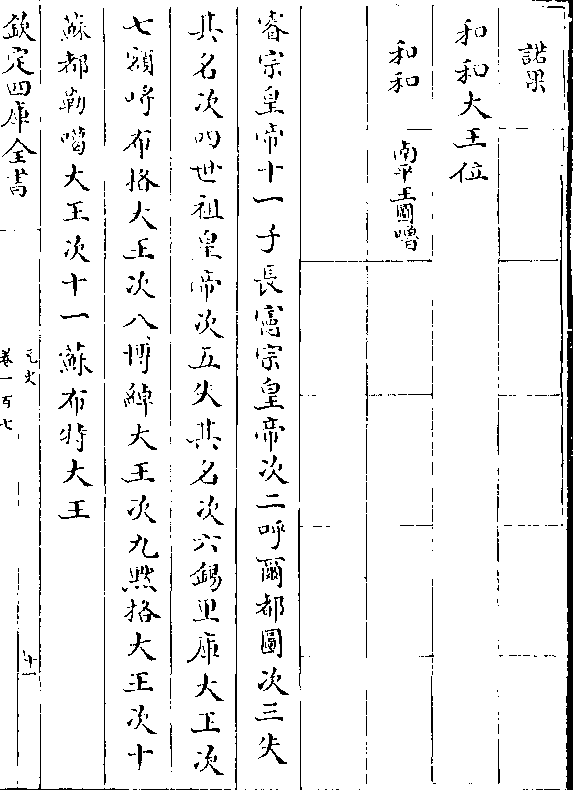 諾果
和和大王位
和和
南平王圖嚕
睿宗皇帝十一子長憲宗皇帝次二呼爾都圖次三失
其名次四世祖皇帝次五失其名次六錫里庫大王次
七額哷布格大王次八博綽大王次九默格大王次十
蘇都勒噶大王次十一蘇布特大王
欽定四庫全書
元史
卷一百七
十一